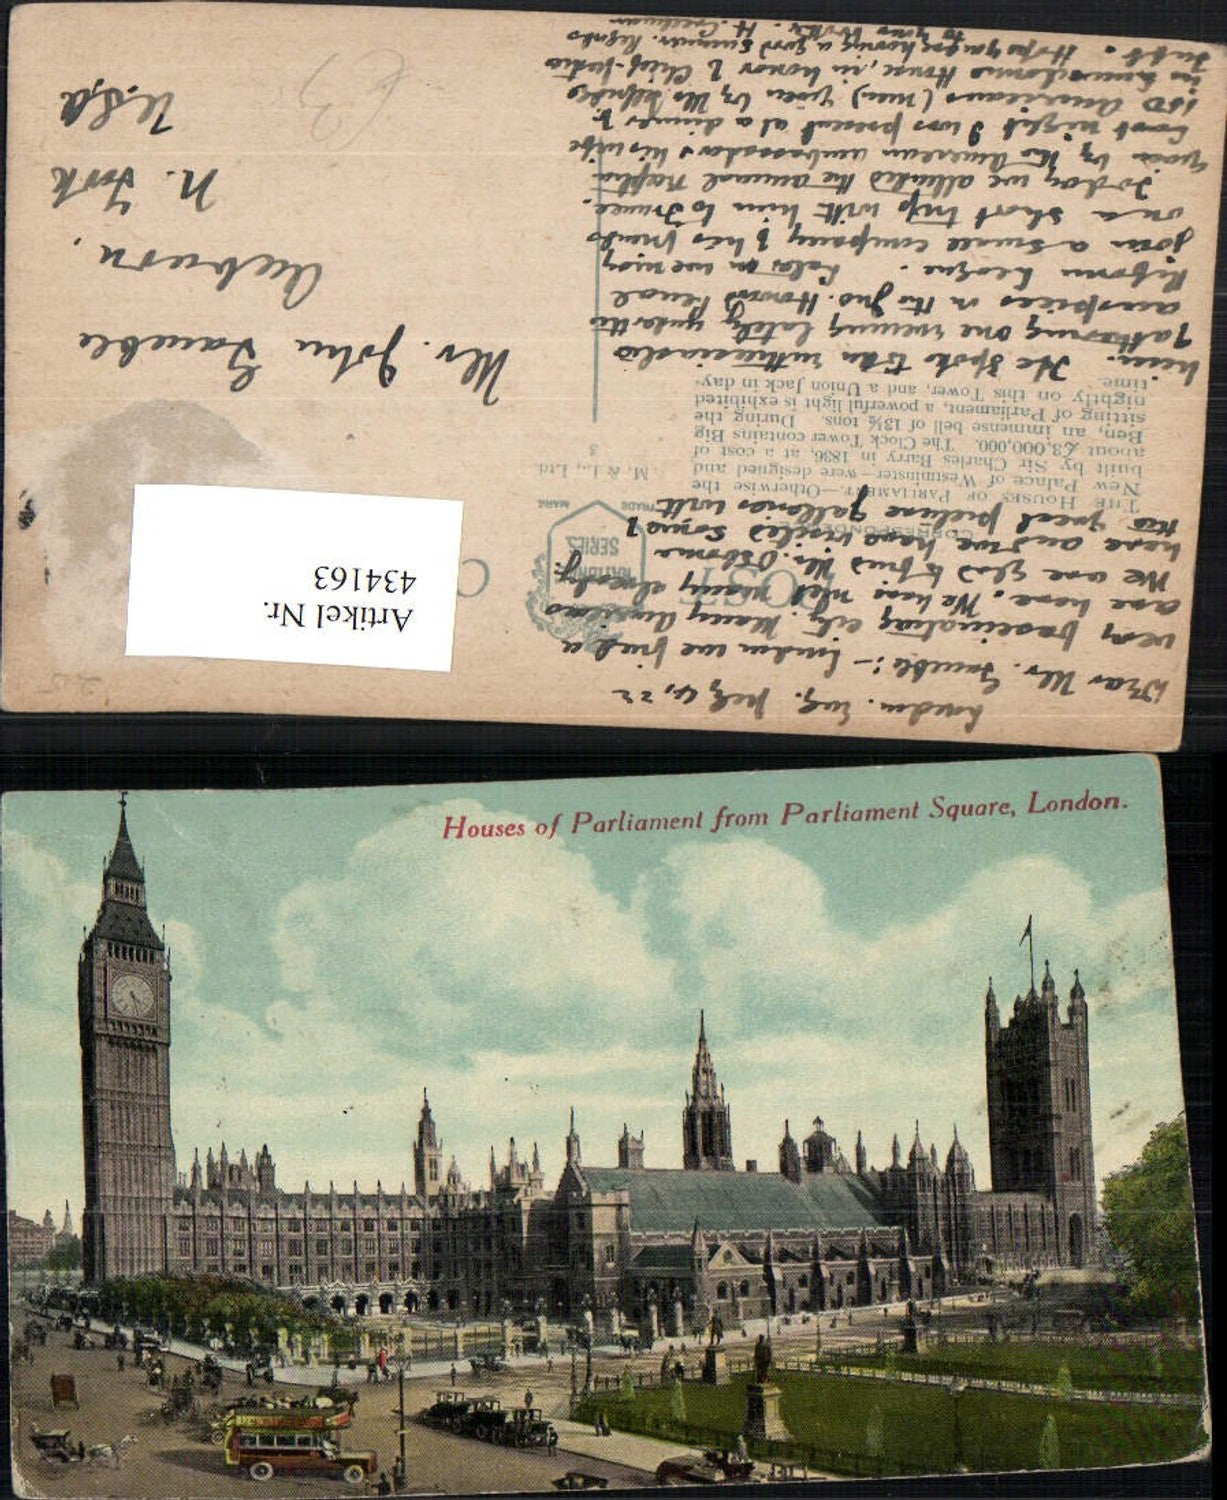 London. Eng. July 4, 22
Dear Mr. Gamble:- London we find a
very fascinating city. Many Americans
are here. We have met many already.
We are glad to find Mr. Osborne
here and we have visited some of
the great picture galleries with
him. He spoke to an enthusiastic
gathering one evening lately under the
auspices of the Jno. Howard Penal
Reform League. Later on we may
join a small company of his friends
on a short trip with him to France.
Today we attended the annual reception
given by the American ambassador & his wife
Last night I was present at a dinner of
150 Americans (men) given by Mr. Selfridge
in Lansdowne House, in honor of Chief-Justice
Taft. Hope you are having a good summer. Regards
to your
Mr. John Gamble
Auburn,
N. York
U.S.A
(3)
POST C
CORRESPONDENCE
NATIONAL
SERIES
TRADE MARK
M. & L., Ltd.
3
THE HOUSES OF PARLIAMENT.—Otherwise the
New Palace of Westminster—were designed and
built by Sir Charles Barry in 1836, at a cost of
about £3,000,000. The Clock Tower contains Big
Ben, an immense bell of 13½ tons. During the
sitting of Parliament, a powerful light is exhibited
nightly on this Tower, and a Union Jack in day-
time.
Artikel Nr.
434163
Houses of Parliament from Parliament Square, London.